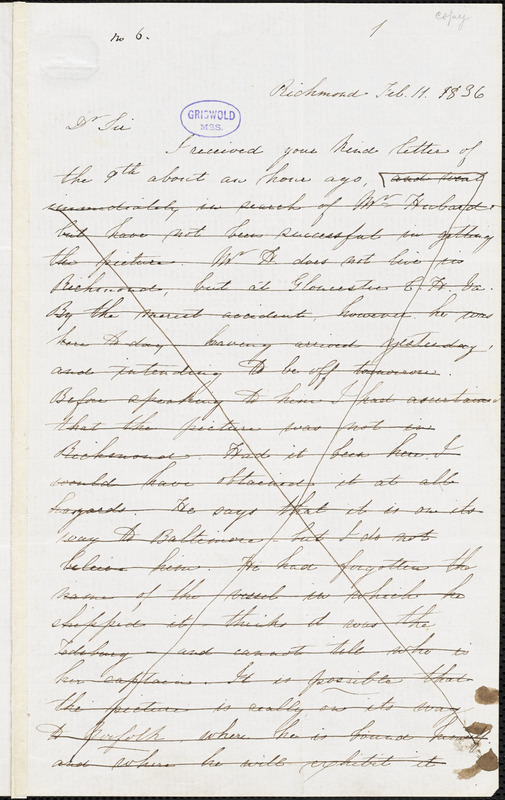 copy
no 6.
1
Richmond Feb. 11. 1836
GRISWOLD
MSS.
Dr Sir
I received your kind letter of
the 9th about an hour ago, and went
immediately in search of Mr Hubard
but have not been successful in getting
the picture. Mr H. does not live in
Richmond, but at Gloucester C. H. Va.
By the merest accident, however, he was
here to day having arrived yesterday,
and intending to be off tomorrow.
Before speaking to him I had ascertained
that the picture was not in
Richmond. Had it been here I
would have obtained it at all
hazards. He says that it is on its
way to Baltimore but I do not
believe him. He had forgotten the
name of the vessel in which he
shipped it - thinks it was the
- and cannot tell who is
her captain. It is possible that
the picture is really on its way
to Norfolk where he is bound
and where he will exhibit it